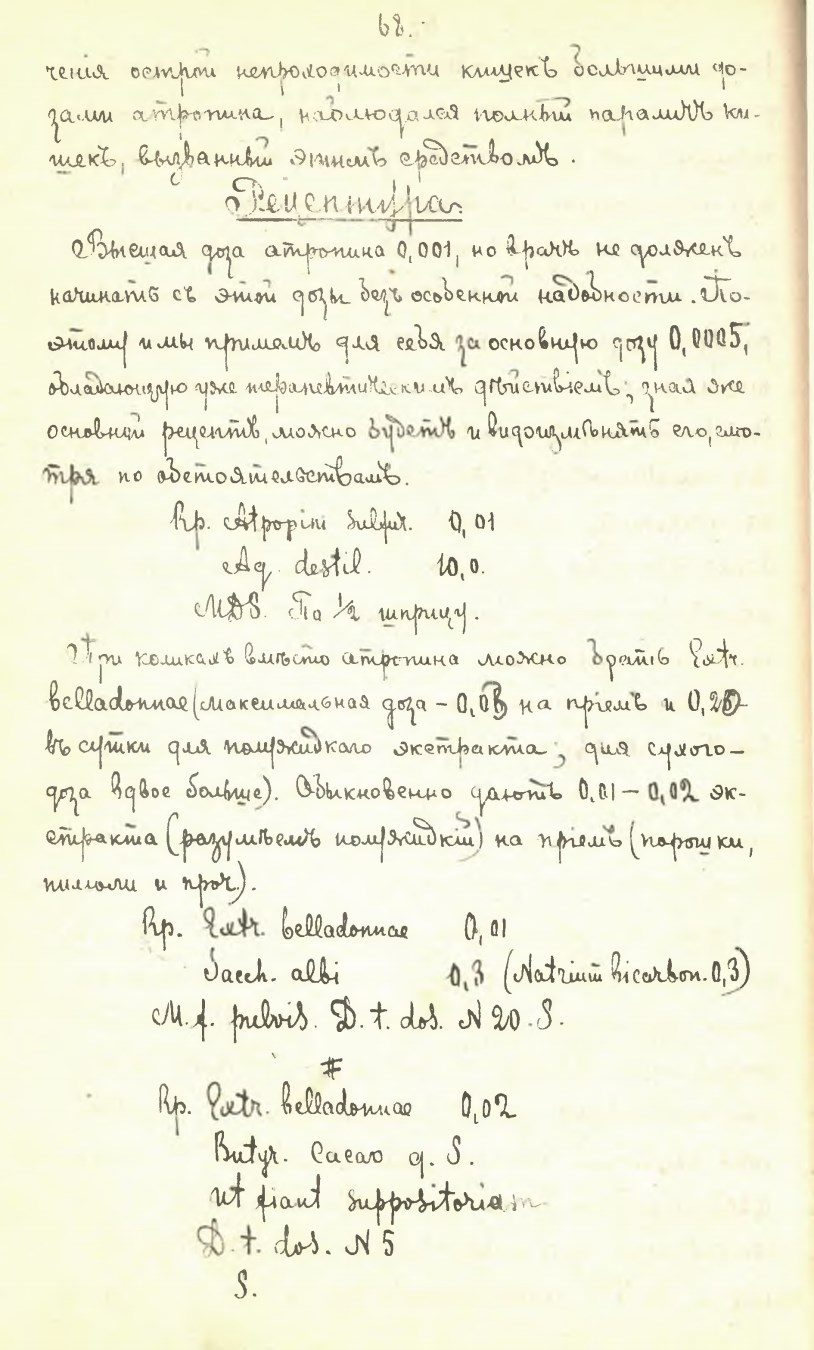 68.
ченія острой непроходимости кишекъ большими до-
зами атропина, наблюдался полный параличъ ки-
шекъ, вызванный этимъ средствомъ.
Рецептура.
Высшая доза атропина 0,001, но врачъ не долженъ
начинать съ этой дозы безъ особенной надобности. По-
этому и мы примемъ для себя за основную дозу 0,0005,
обладающую уже терапевтическимъ дѣйствіемъ; зная же
основной рецептъ, можно будетъ и видоизмѣнять его, смо-
тря по обстоятельствамъ.
Rp. Atropini sulfur. 0,01
Aq. destil. 10,0.
MDS. По 1/2 шприцу.
При коликахъ вмѣсто атропина можно брать Extr.
belladonnae (максимальная доза – 0,05 на пріемъ и 0,20
въ сутки для полужидкаго экстракта; для сухого –
доза вдвое больше). Обыкновенно даютъ 0,01 – 0,02 эк-
стракта (разумѣемъ полужидкій) на пріемъ (порошки,
пилюли и проч.).
Rp. Extr. belladonnae 0,01
Sacch. albi 0,3 (Natrium bicarbon. 0,3)
M. f. pulvis. D. t. dos. N 20. S.
#
Rp. Extr. belladonnae 0,02
Butyr. Cacao q. S.
ut fiant suppositoriam
D. t. dos. N 5
S.